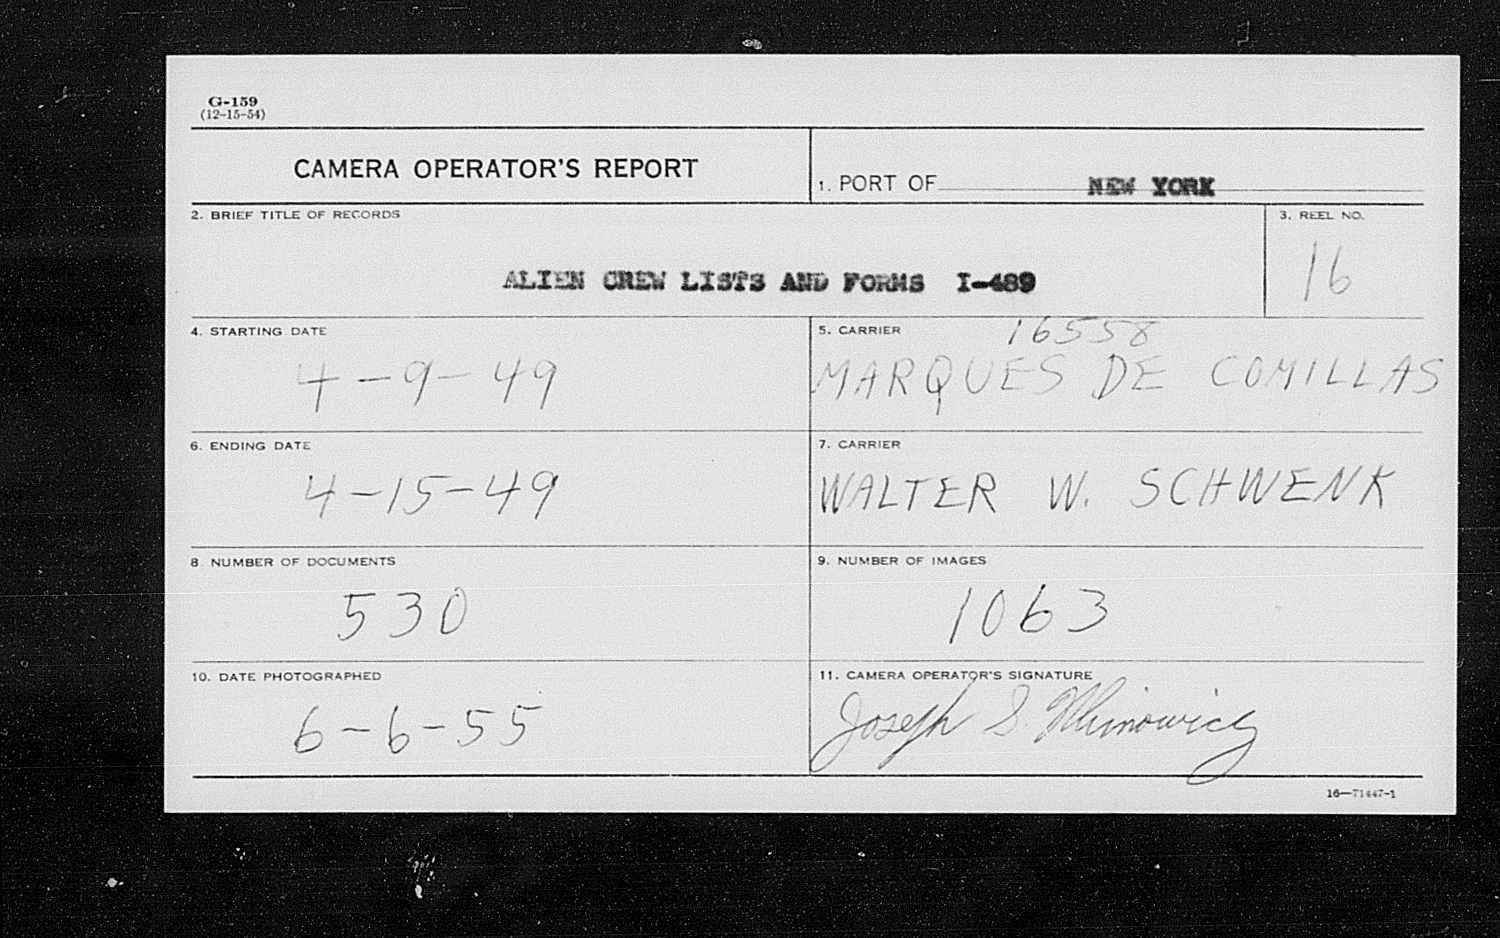 G-159
(12-15-54)
CAMERA OPERATOR'S REPORT
1. PORT OF NEW YORK
2. BRIEF TITLE OF RECORDS
3. REEL NO.
ALIEN CREW LISTS AND FORMS I-489
16
4. STARTING DATE
5. CARRIER
16558
4-9-49
MARQUES DE COMILLAS
6. ENDING DATE
7. CARRIER
4-15-49
WALTER W. SCHWENK
8 NUMBER OF DOCUMENTS
9. NUMBER OF IMAGES
530
1063
10. DATE PHOTOGRAPHED
11. CAMERA OPERATOR'S SIGNATURE
6-6-55
Joseph S.
16—71447-1